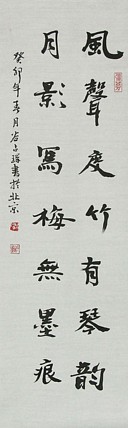 風聲度竹有琴韵
月影寫梅無墨痕
癸卯年春月谷占祥書於北京